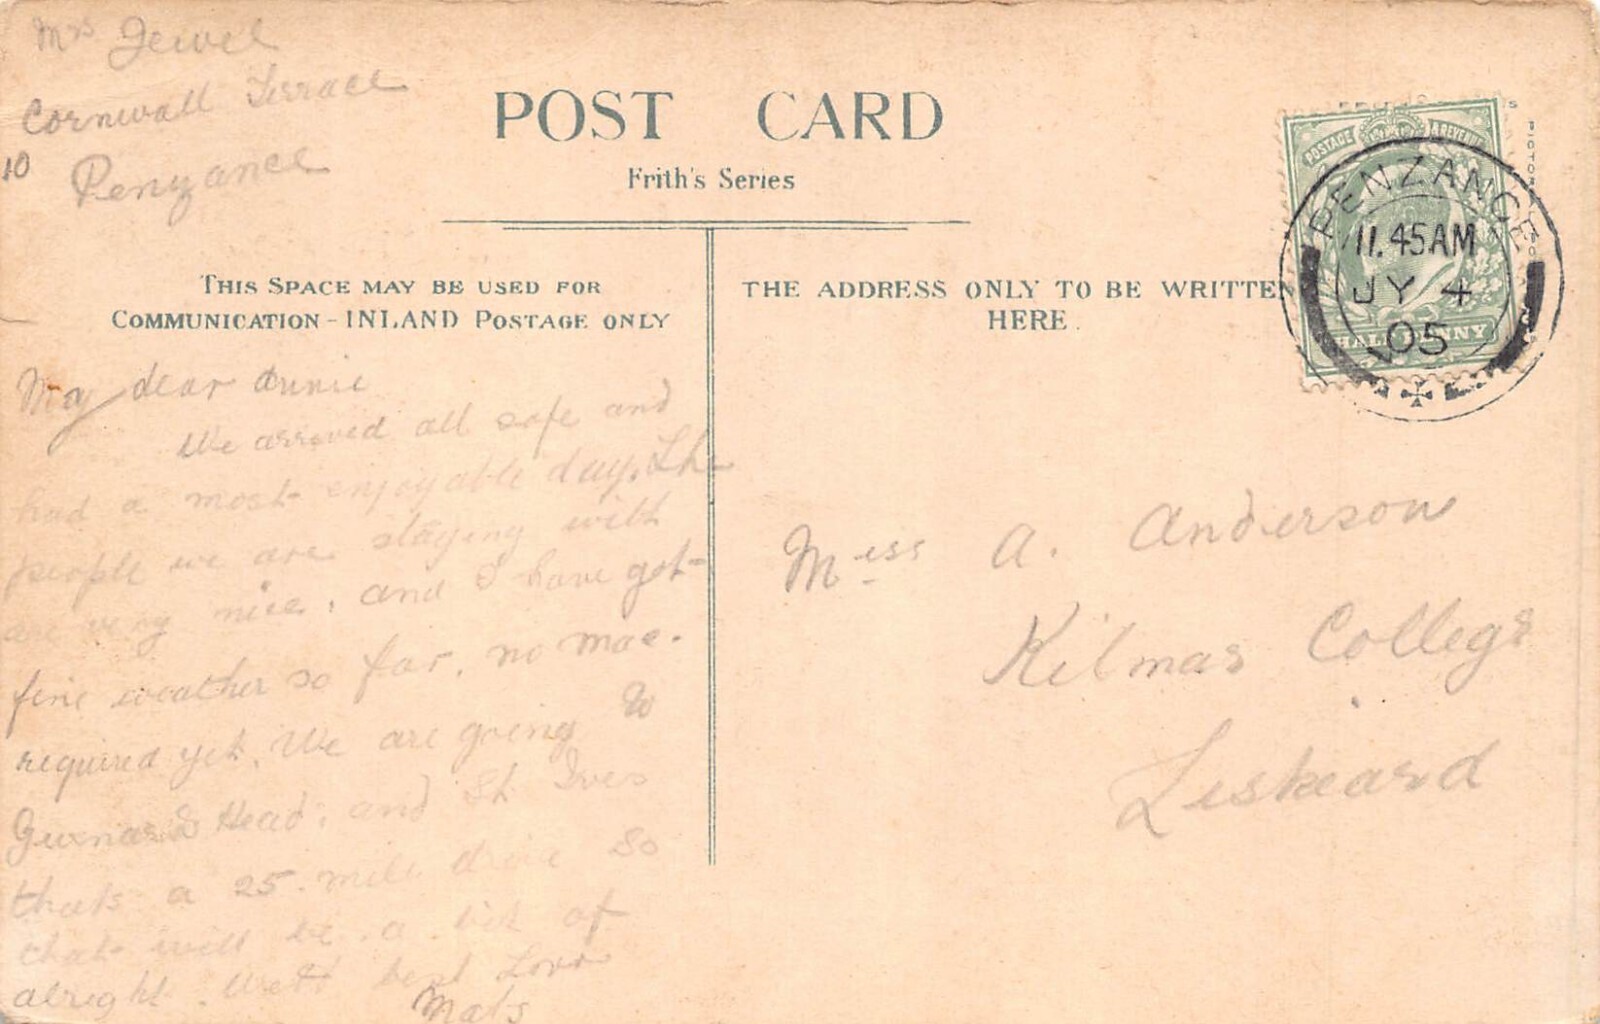 Mrs Jewel
Cornwall Terrace
10
Penzance
POST CARD
Frith's Series
THIS SPACE MAY BE USED FOR
COMMUNICATION - INLAND POSTAGE ONLY
THE ADDRESS ONLY TO BE WRITTEN
HERE.
POSTAGE & REVENUE
HALFPENNY
PENZANCE
11.45AM
JY 4
05
My dear Annie
We arrived all safe and
had a most enjoyable day. The
people we are staying with
are very nice, and I have got
fine weather so far. no mac.
required yet. We are going to
Gurnards Head, and St Ives
thats a 25 mile drive so
that will be a bit of
alright. With best Love
Mats
Miss A. Anderson
Kilmar College
Liskeard